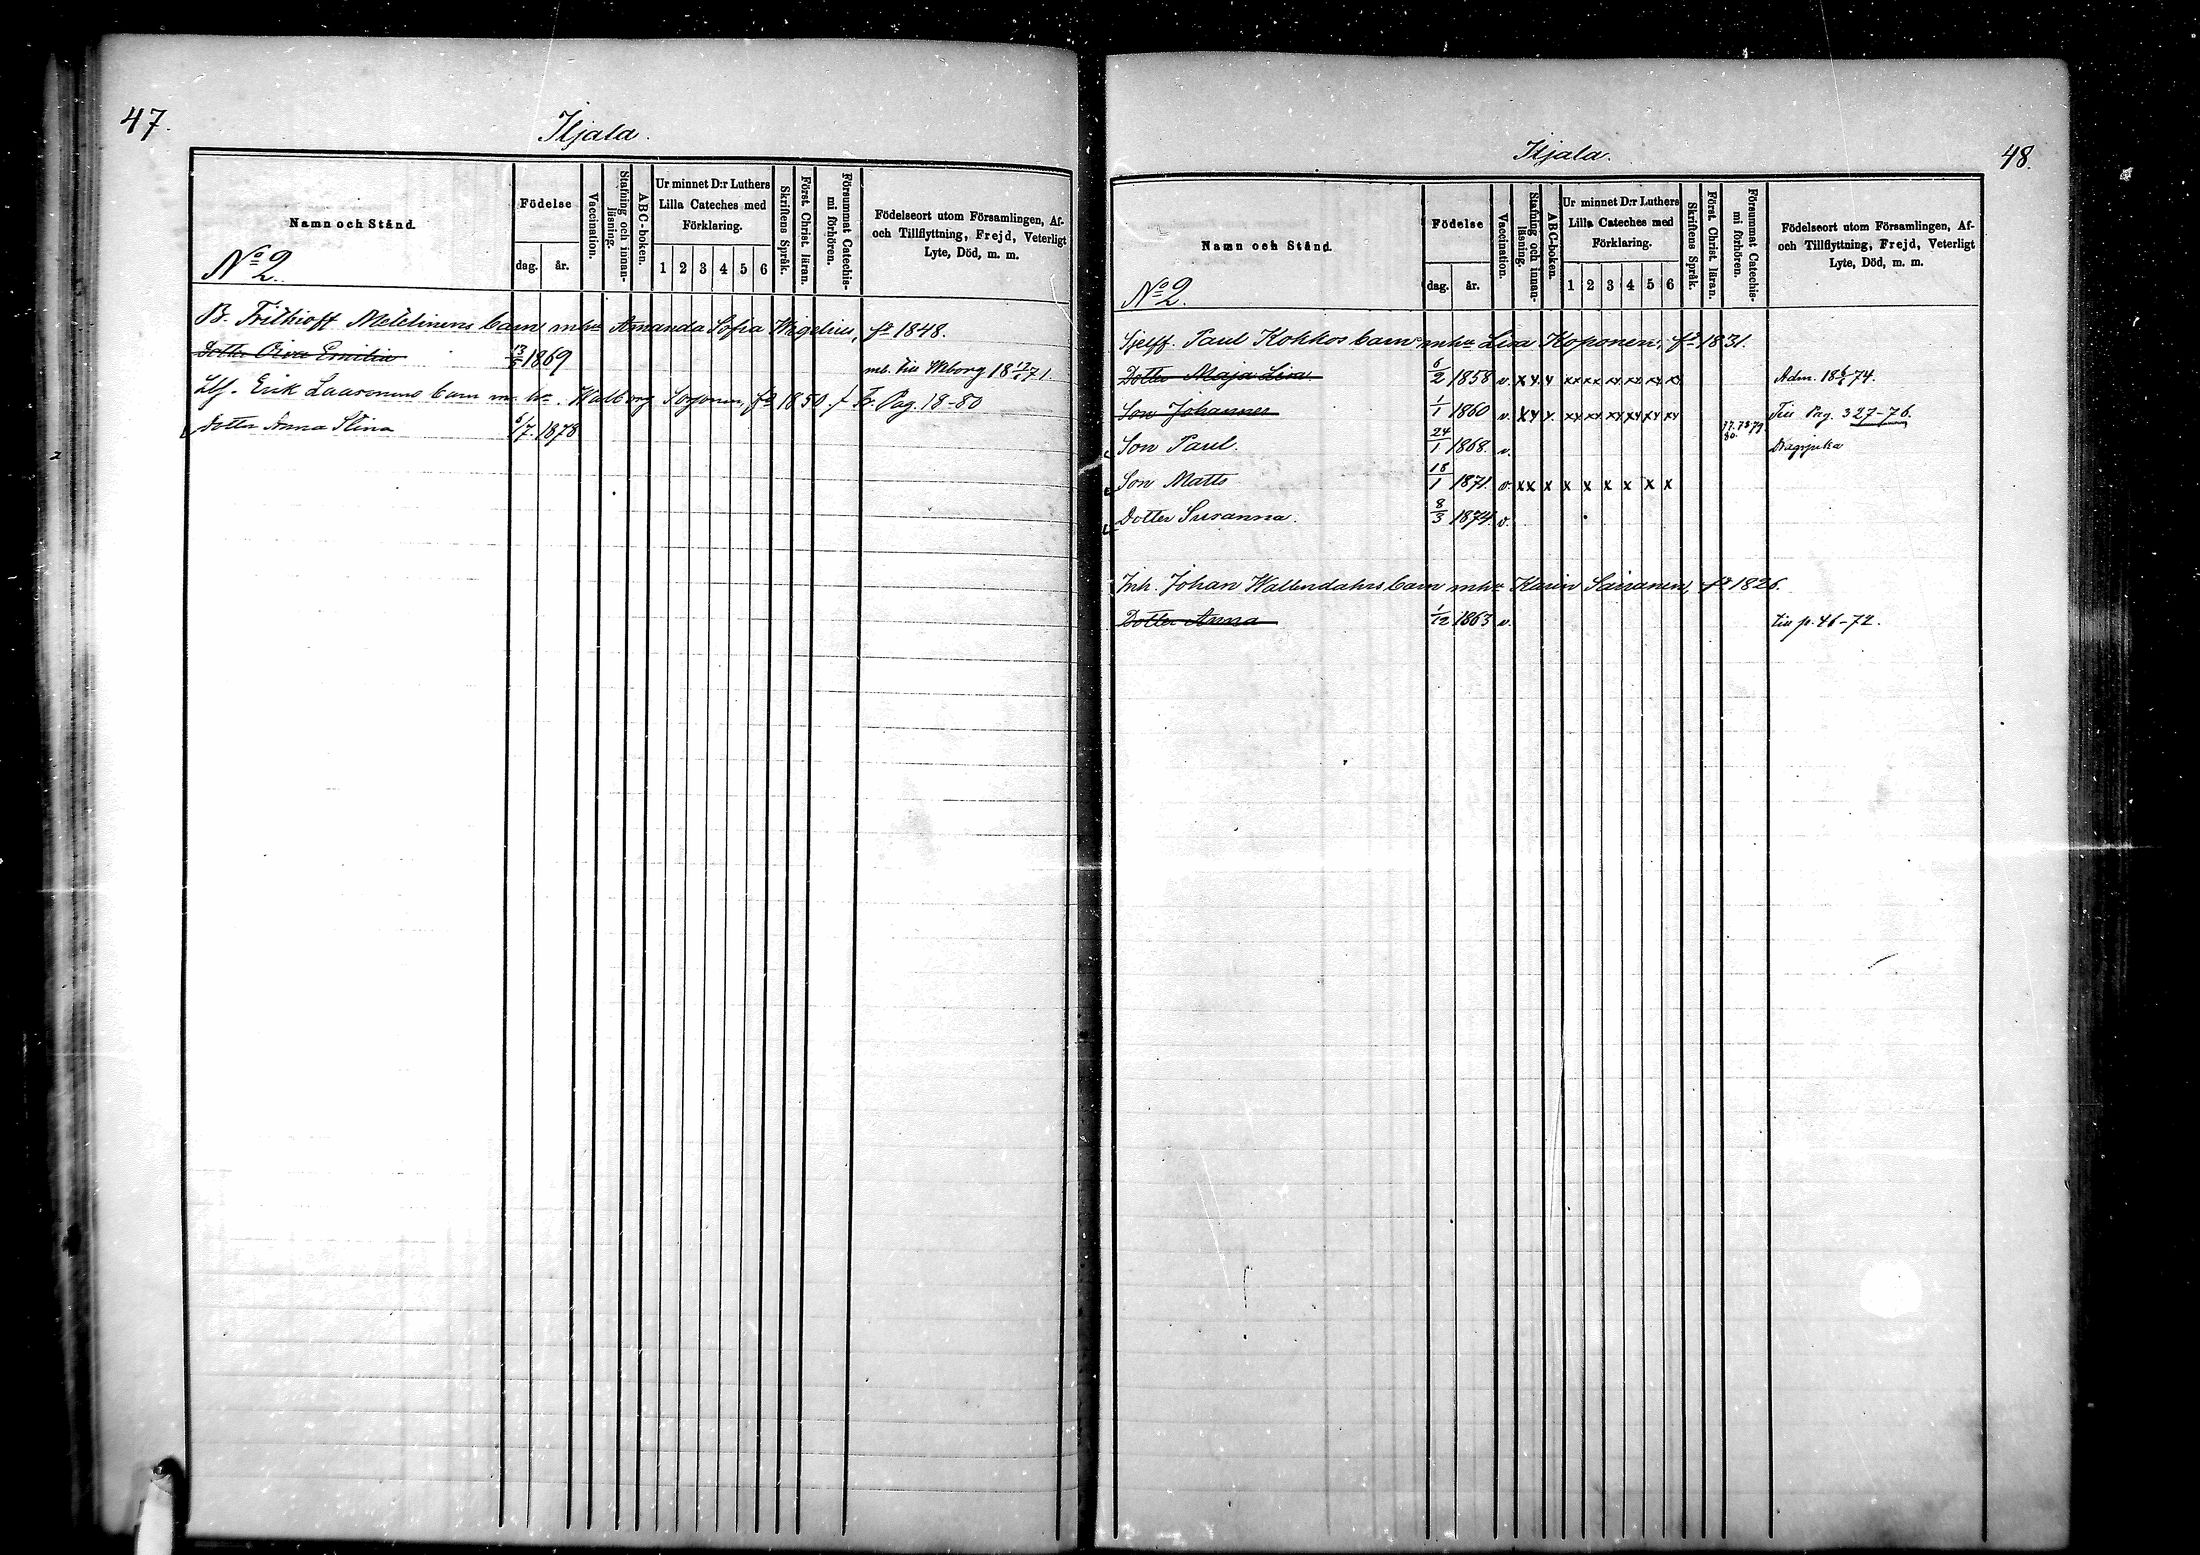 47.
Iljala.
Namn och Stånd.
Födelse
dag. år.
Vaccination.
Stafning och innan-läsning.
ABC-boken.
Ur minnet D:r Luthers
Lilla Cateches med
Förklaring.
1 2 3 4 5 6
Skriftens Språk.
Först. Christ. läran.
Försummat Catechis-mi förhören.
Födelseort utom Församlingen, Af-
och Tillflyttning, Frejd, Veterligt
Lyte, Död, m. m.
No 2.
B. Frithioff barn mhu Amanda Sofia Wigelius, fd 1848.
Dotter Emilia 1869 mb. till Wiborg 18 12/ 71.
Erik Laasonens barn m. hu. Walborg fd 1850. Fr. Pag. 18-80
Dotter Anna Stina 6/7. 1878
48.
Iljala.
Namn och Stånd.
Födelse
dag. år.
Vaccination.
Stafning och innan-läsning.
ABC-boken.
Ur minnet D:r Luthers
Lilla Cateches med
Förklaring.
1 2 3 4 5 6
Skriftens Språk.
Först. Christ. läran.
Försummat Catechis-mi förhören.
Födelseort utom Församlingen, Af-
och Tillflyttning, Frejd, Veterligt
Lyte, Död, m. m.
No 2.
Sjelff. Paul Kokkos barn mhu Lisa Koponen, fd 1831.
Dotter Maja Lisa 6/2 1858 v. x x x xx xx xx xx xx xx Adm. 74.
Son Johannes 1/1 1860 v. x x x. xx xx xx xx xx xx Till Pag. 327-76.
Son Paul. 24/1 1868. v. 77. 78. 79. 80.
Son Matts 18/1 1871. v. x x x x x x x x x
Dotter Susanna. 8/3 1874. v.
Inh. Johan Wallendahls barn mhu Karin Sairanen, fd 1826.
Dotter Anna 1/12 1863 v. till p. 46-72.